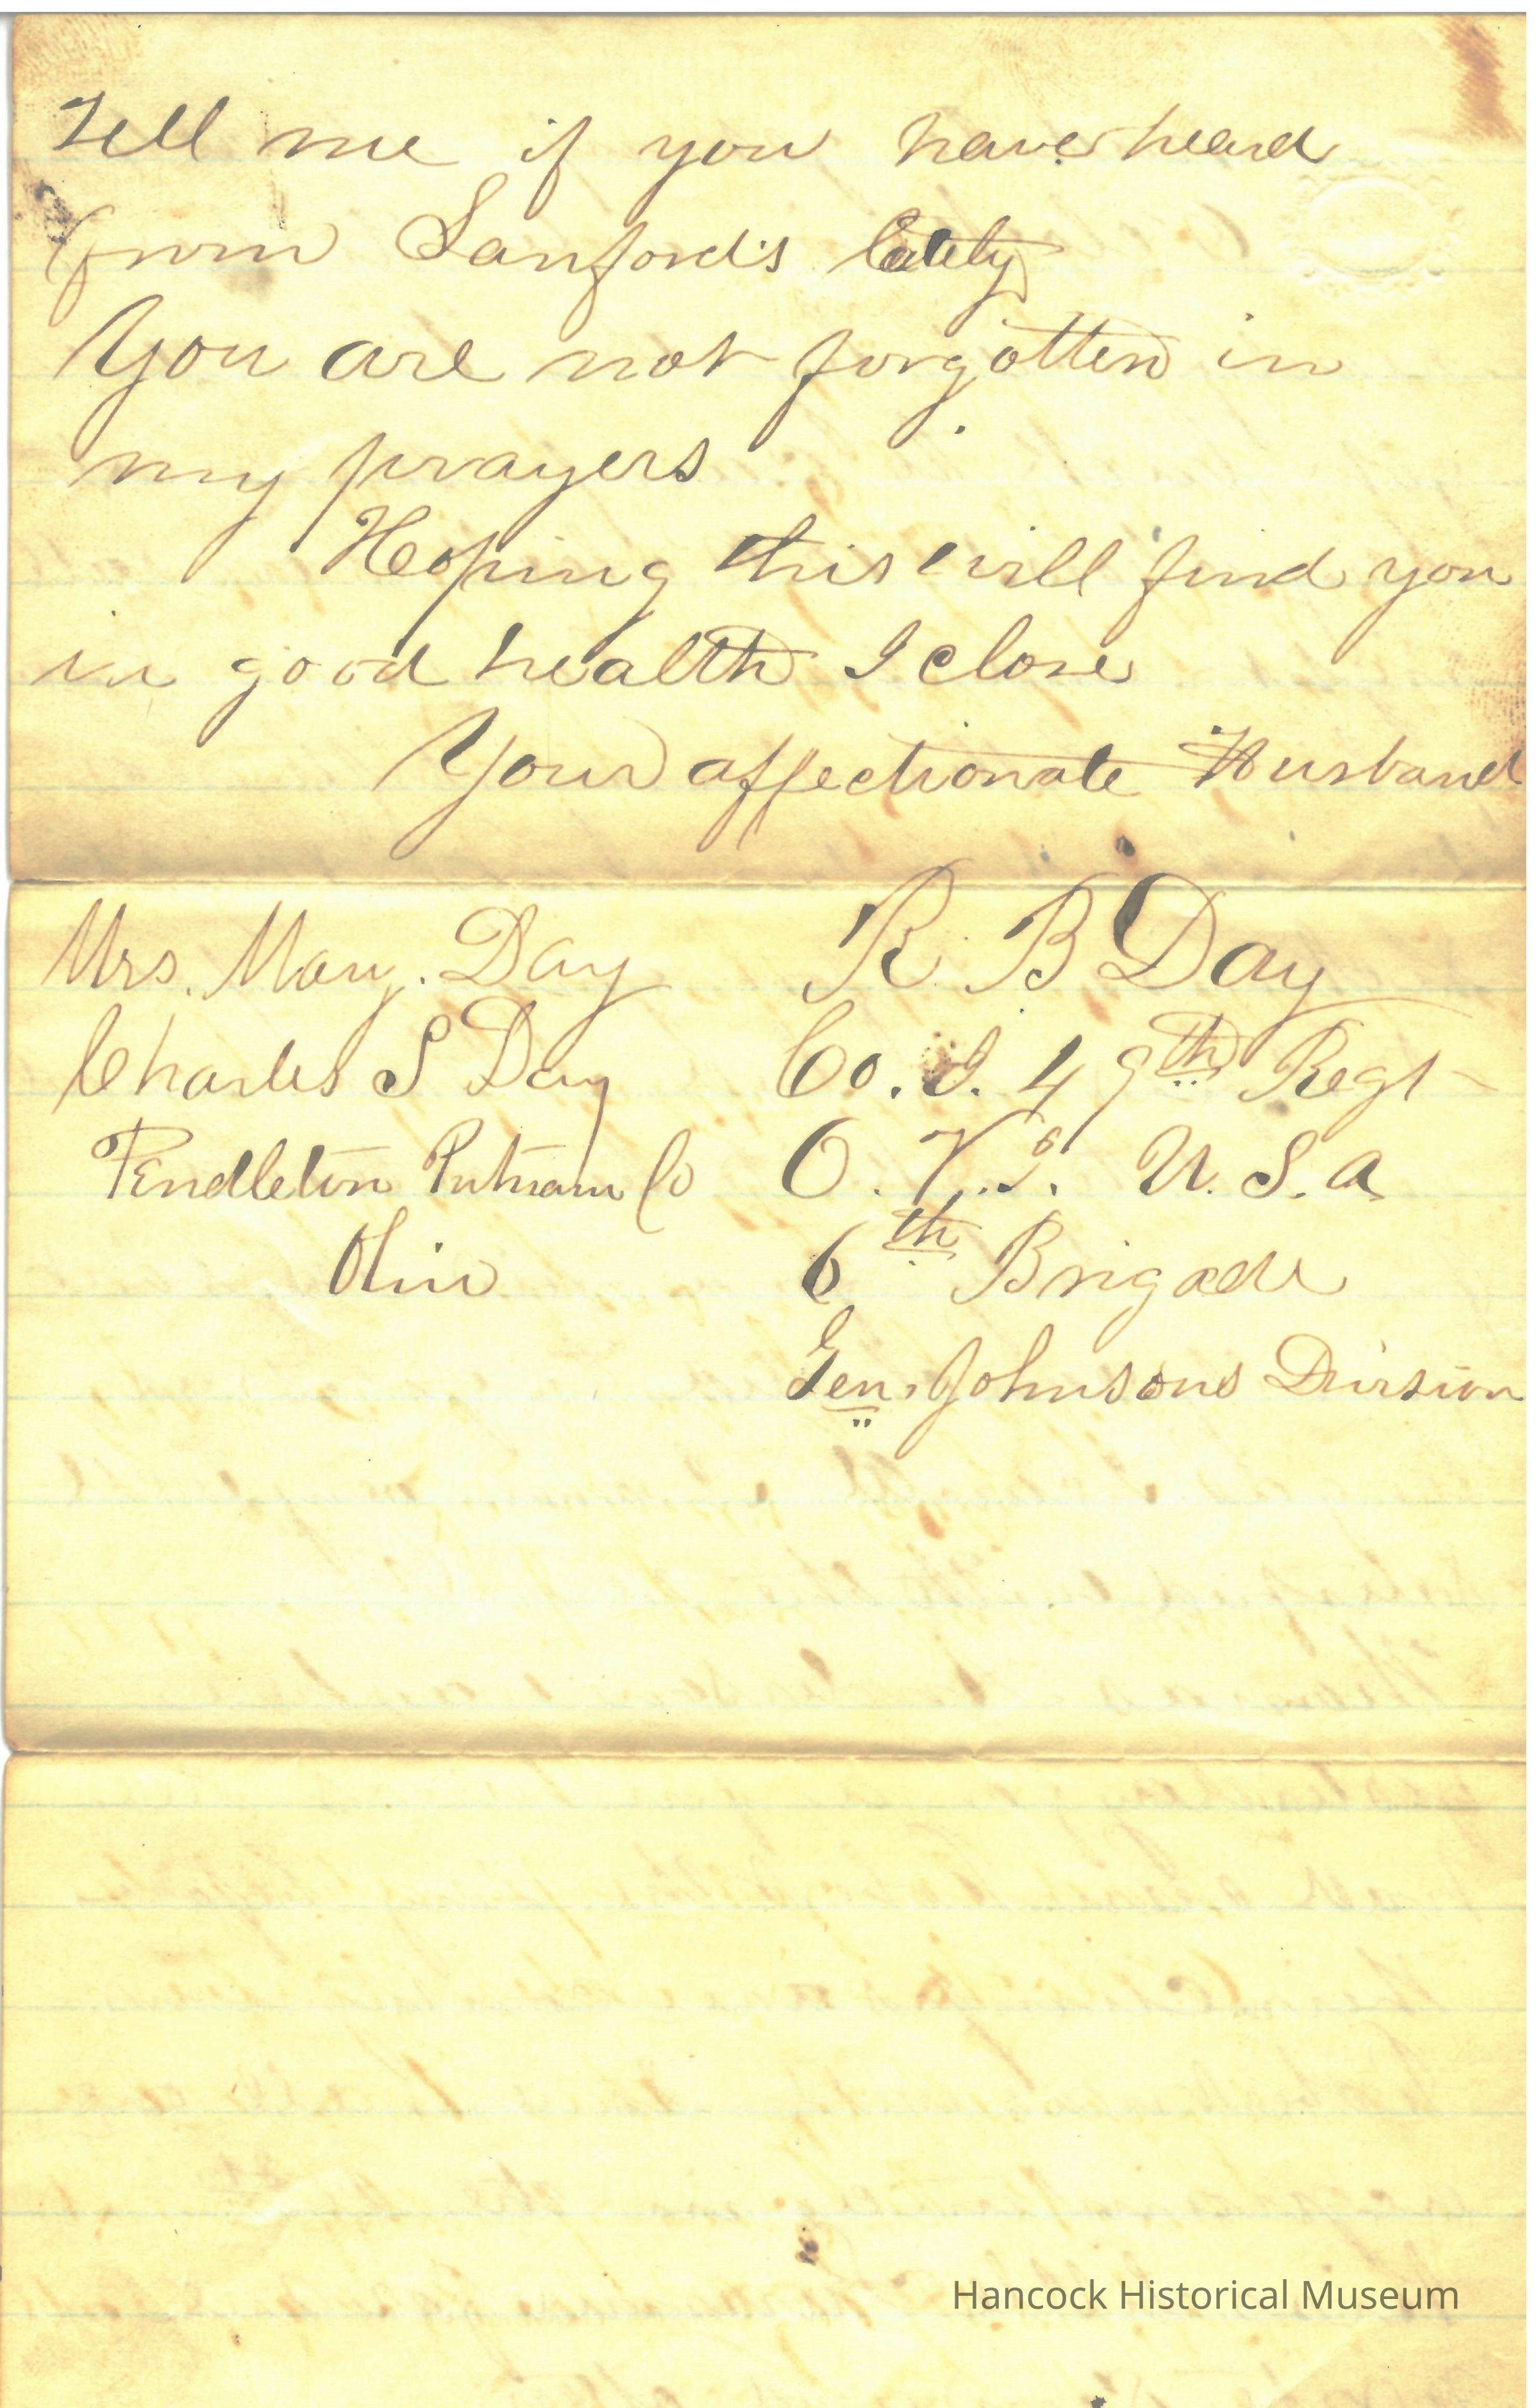 Tell me if you have heard
from Sanford's lately
You are not forgotten in
my prayers
Hoping this will find you
in good health I close
Your affectionate Husband
R. B Day
Mrs. Mary. Day
Charles S Day
Pendleton Putnam Co
Ohio
Co. I. 49th Regt
O. V.s. U. S. A
6th Brigade
Gen. Johnsons Division
Hancock Historical Museum